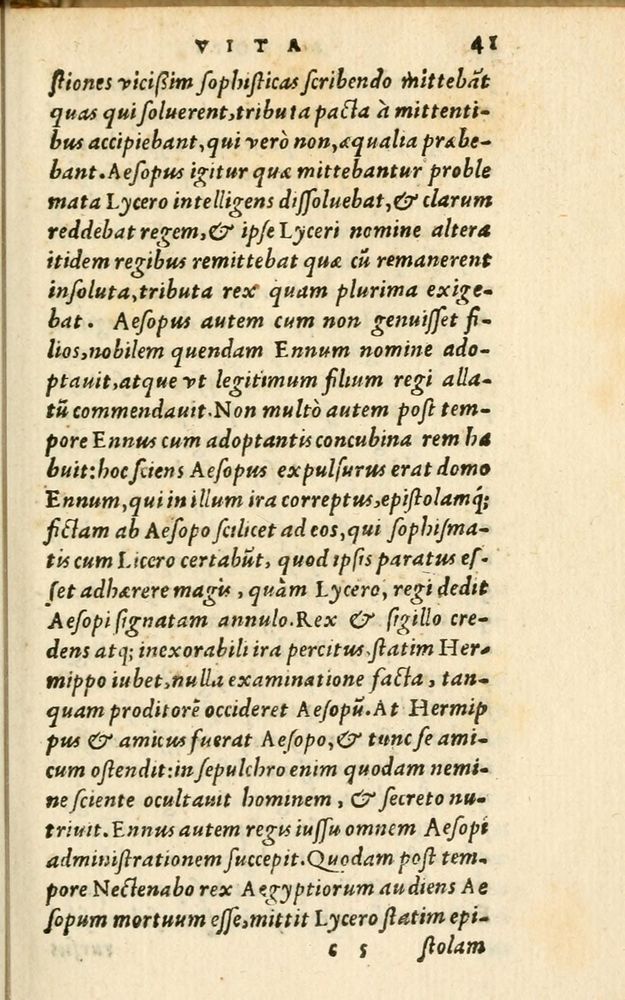 VITA 41
ſtiones vicißim ſophiſticas ſcribendo mittebāt
quas qui ſoluerent,tributa pacta à mittenti-
bus accipiebant,qui verò non,æqualia præbe-
bant.Aeſopus igitur quæ mittebantur proble
mata Lycero intelligens diſſoluebat,& clarum
reddebat regem,& ipſe Lyceri nomine altera
itidem regibus remittebat quæ cū remanerent
inſoluta,tributa rex quam plurima exige-
bat. Aeſopus autem cum non genuiſſet fi-
lios,nobilem quendam Ennum nomine ado-
ptauit,atque vt legitimum filium regi alla-
tū commendauit.Non multò autem poſt tem-
pore Ennus cum adoptantis concubina rem ha
buit:hoc ſciens Aeſopus expulſurus erat domo
Ennum,qui in illum ira correptus,epiſtolamq́;
fictam ab Aeſopo ſcilicet ad eos,qui ſophiſma-
tis cum Licero certabūt, quod ipſis paratus eſ-
ſet adhærere magis, quàm Lycero, regi dedit
Aeſopi ſignatam annulo.Rex & ſigillo cre-
dens atq; inexorabili ira percitus,ſtatim Her-
mippo iubet,nulla examinatione facta, tan-
quam proditorē occideret Aeſopū.At Hermip
pus & amicus fuerat Aeſopo,& tunc ſe ami-
cum oſtendit:in ſepulchro enim quodam nemi-
ne ſciente ocultauit hominem, & ſecreto nu-
triuit.Ennus autem regis iuſſu omnem Aeſopi
adminiſtrationem ſuccepit.Quodam poſt tem-
pore Nectenabo rex Aegyptiorum audiens Ae
ſopum mortuum eſſe,mittit Lycero ſtatim epi-
c 5 ſtolam